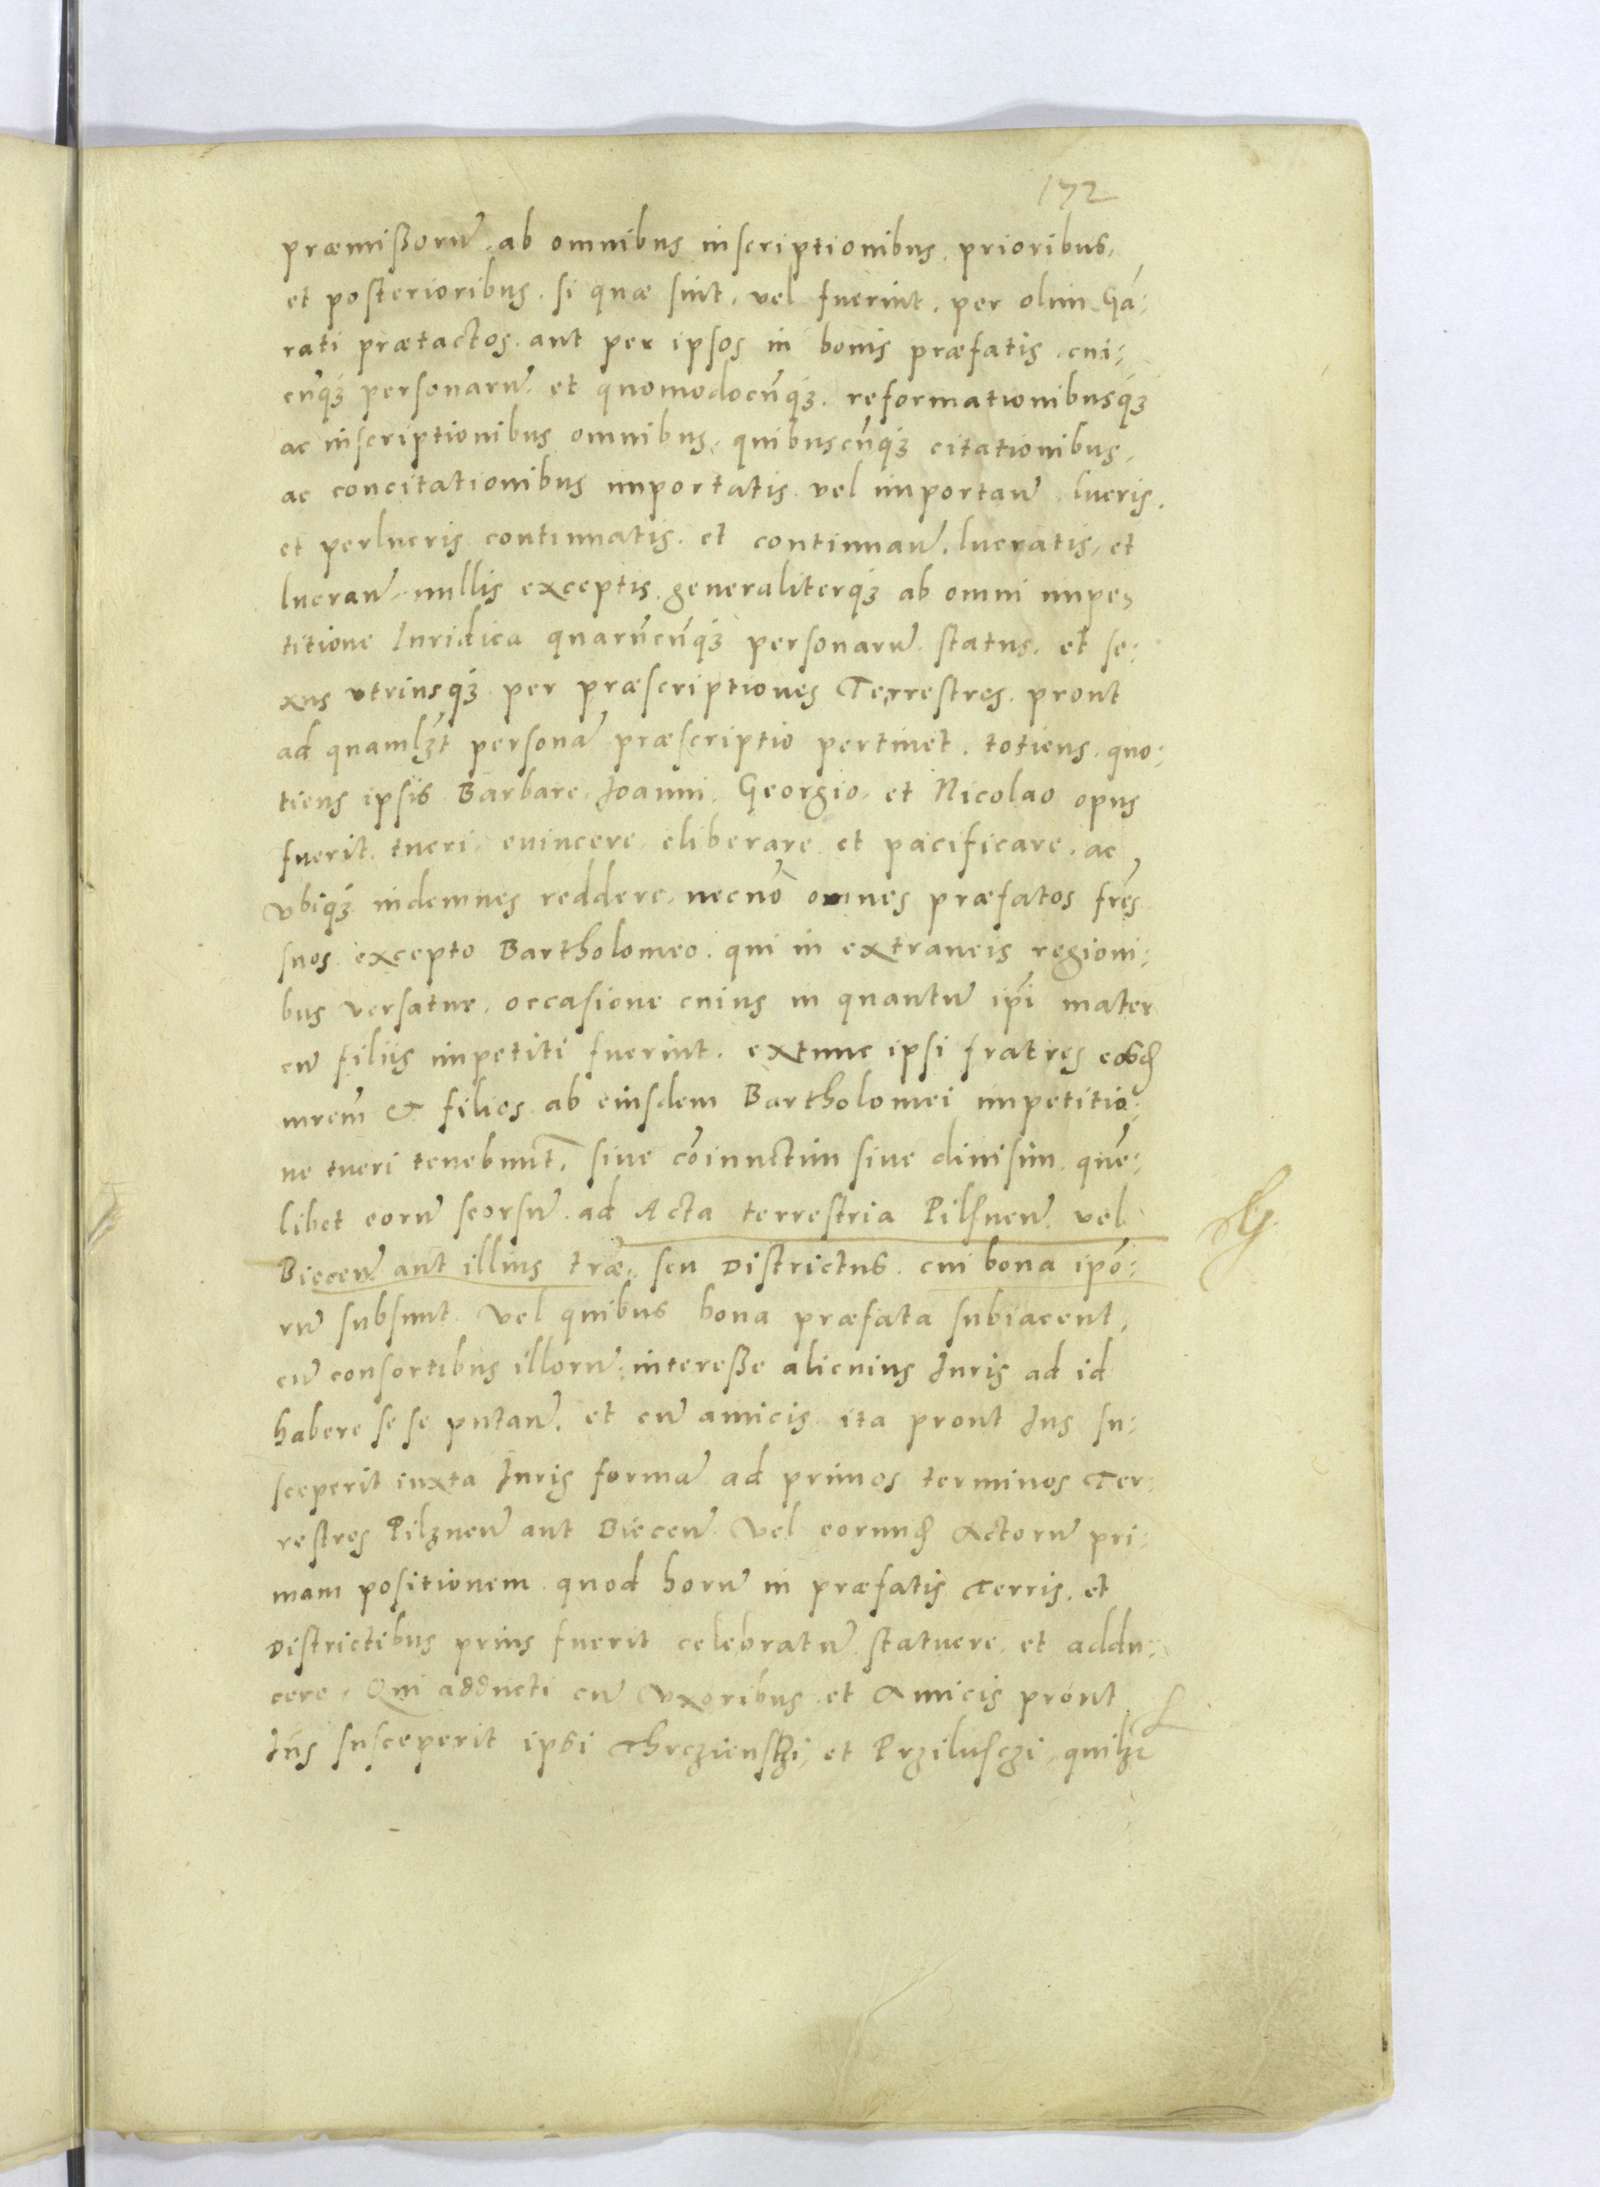 172
præmißorũ, ab omnibus inscriptionibus, prioribus,
et posterioribus, si quæ sint, vel fuerint, per olim Ga:
rati prætactos, aut per ipsos in bonis præfatis, cui:
cũqꝫ personarũ, et quomodocũqꝫ, reformationibusqꝫ
ac inscriptionibus omnibus, quibuscũqꝫ citationibus,
ac concitationibus importatis vel importanĩ, lucris,
et perlucris continuatis, et continuanĩ, lucratis, et
lucranĩ, nullis exceptis, generaliterqꝫ ab omni impe:
titione Iuridica quarũcũqꝫ personarũ, status, et se:
xus vtriusqꝫ, per præscriptiones Terrestres, prout
ad quamlꝫt personã præscriptio pertinet, totiens, quo:
tiens ipsis Barbare, Joanni, Georgio, et Nicolao opus
fuerit, tueri, euincere, eliberare et pacificare, ac
vbiqꝫ indemnes reddere, necnõ omnes præfatos fres
suos, excepto Bartholomeo, qui in extraneis regioni:
bus versatur, occasione cuius in quantũ ipsi mater
cũ filiis impetiti fuerint, extunc ipsi fratres eosd
mrem & filios ab eiusdem Bartholomei impetitio:
ne tueri tenebunt, siue cõiunctim siue diuisim, quẽ:
libet eorũ seorsũ, ad Acta terrestria Pilsnenĩ, vel
Biecenĩ aut illius træ, seu Districtus, cui bona ipõ:
rũ subsunt, vel quibus bona præfata subiacent,
cũ consortibus illorũ, intereße alicuius Iuris ad id
habere se se putanĩ, et cũ amicis, ita prout Ius su:
sceperit iuxta Iuris formã ad primos terminos Ter:
restres Pilznenĩ aut Biecenĩ, vel eorund Actorũ pri:
mam positionem, quod horũ in præfatis Terris, et
Districtibus prius fuerit celebratũ, statuere, et addu:
cere, Qui adducti cũ vxoribus, et Amicis prout
Ius susceperit ipsi Chrcziensʒki, et Przilusczi, quilꝫt